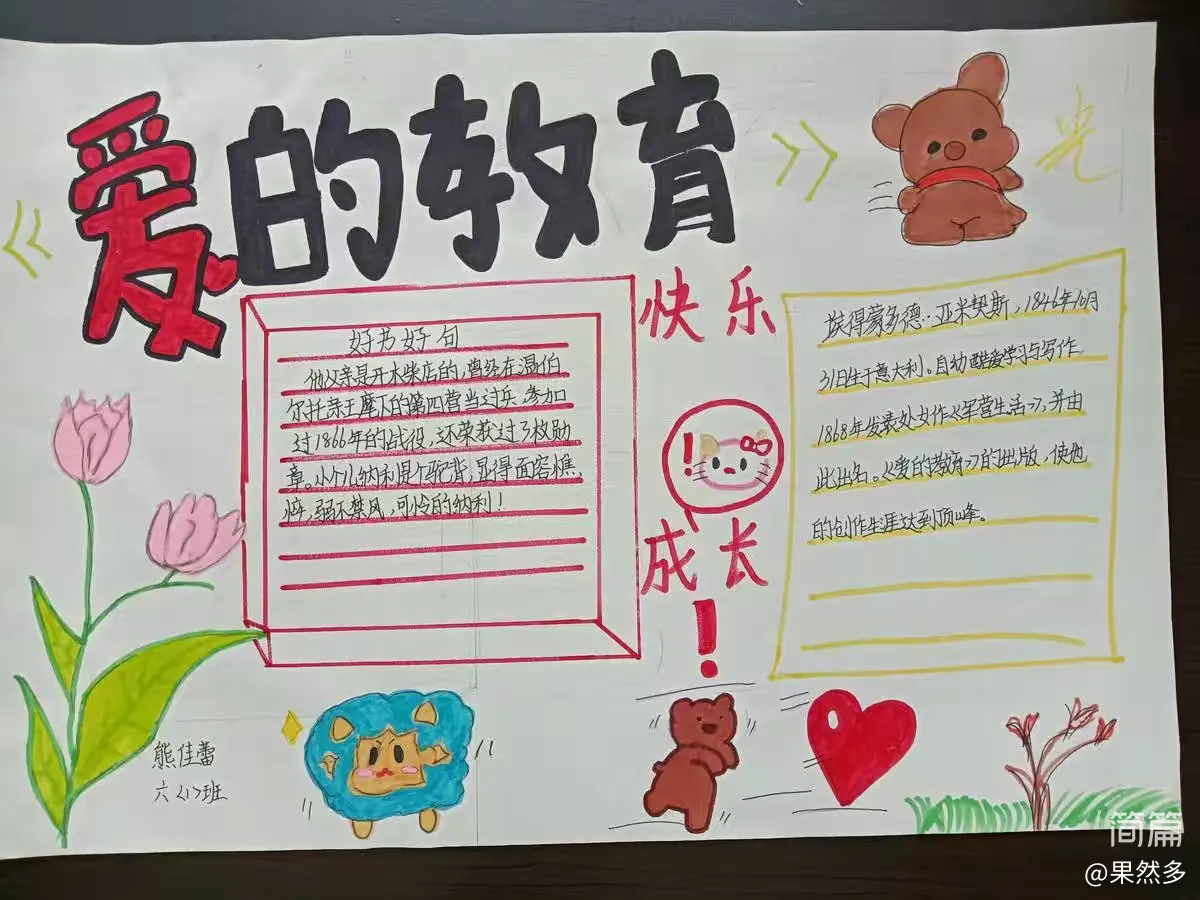 《爱的教育》
光
快乐
好书好句
他父亲是开木柴店的,曾经在温伯
尔托亲王麾下的第四营当过兵、参加
过1866年的战役,还荣获过了枚勋
章。小个儿纳利是个驼背,显得面容憔
悴,弱不禁风,可怜的纳利!
成长
!
埃得蒙多德·亚米契斯,1846年10月
31日生于意大利。自幼酷爱学习与写作
1868年发表处女作《军营生活》,并由
此出名。《爱的教育》的出版,使他
的创作生涯达到顶峰。
熊佳蕾
六〈1〉班
简篇
@果然多